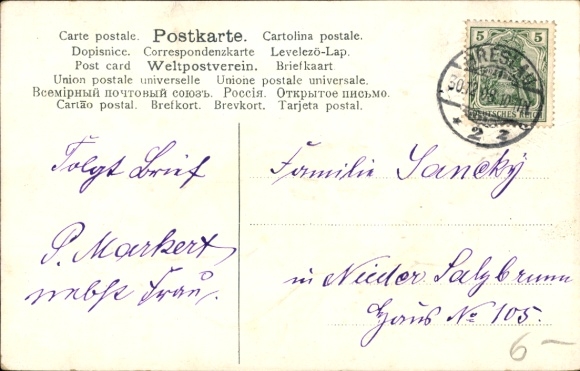 Carte postale. Postkarte. Cartolina postale.
Dopisnice. Correspondenzkarte Levelezö-Lap.
Post card Weltpostverein. Briefkaart
Union postale universelle Unione postale universale.
Всемiрный почтовый союзъ. Россiя. Открытое письмо.
Cartão postal. Brefkort. Brevkort. Tarjeta postal.
5 5
DEUTSCHES REICH
BRESLAU
2
Folgt Brief
P. Markert
nebst Frau.
Familie Sancky
in Nieder Salzbrunn
Haus No 105.
6-